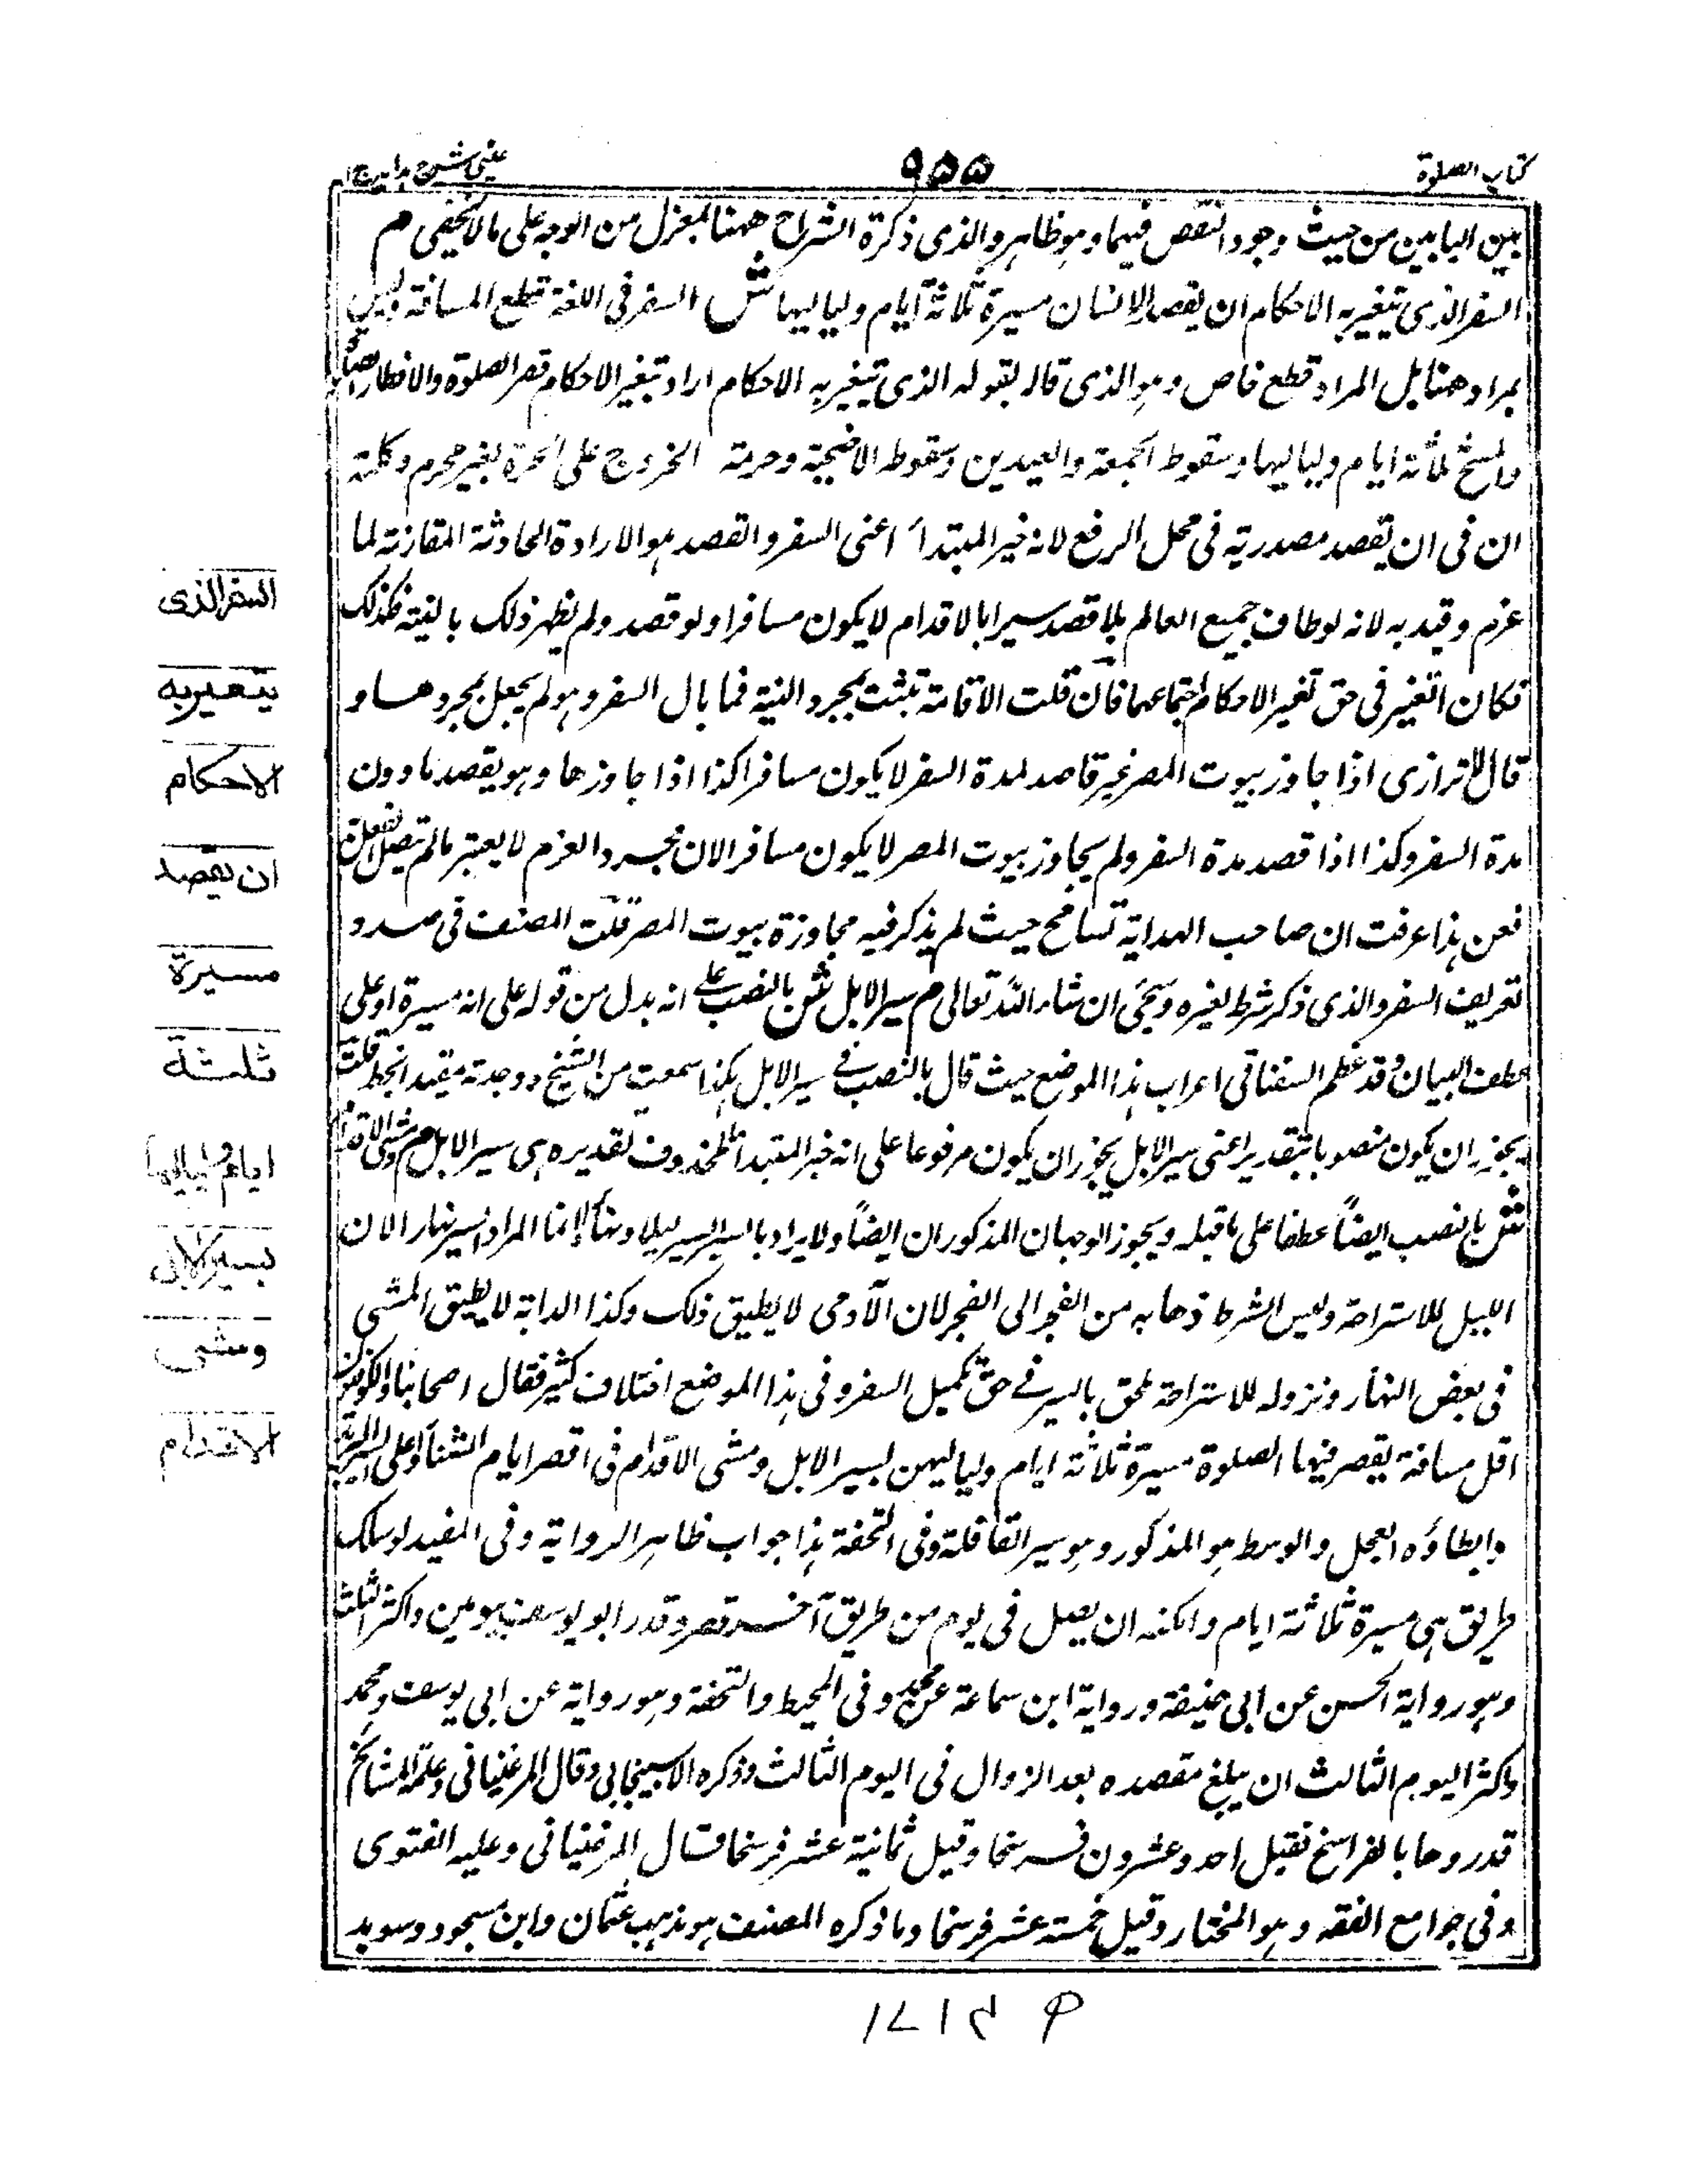 كتاب الصلوة
٩٥٥
عينى شرح هداية ج ا
بين البابين من حيث وجود النقص فيهما وهو ظاهر والذى ذكرة الشراح ههنا بمعزل من الوجه على مالا يخفى م
السفر الذى يتغير به الاحكام ان يقصد الانسان مسيرة ثلاثة ايام ولياليها ش السفر فى اللغة قطع المسافة وليس
بمراد ههنا بل المراد قطع خاص وهو الذى قاله بقوله الذى يتغير به الاحكام اراد بتغير الاحكام قصر الصلوة والافطار
والمسح ثلثة ايام ولياليها وسقوط الجمعة والعيدين وسقوط الاضحية وحرمة الخروج على الحرة بغير محرم وكلمة
ان فى ان يقصد مصدرية فى محل الرفع لانه خبر المبتدأ اعنى السفر والقصد هو الارادة الحادثة المقارنة لما
عزم وقيد به لانه لو طاف جميع العالم بلا قصد سيرا بالاقدام لا يكون مسافرا ولو قصد ولم يظهر ذلك بالنية فكذلك
فكان التغير فى حق تغير الاحكام اجتماعهما فان قلت الاقامة تثبت بمجرد النية فما بال السفر وهو لم يجعل بمجردها و
قال الاترازى اذا جاوز بيوت المصر غير قاصد لمدة السفر لا يكون مسافرا كذا اذا جاوزها وهو يقصد مادون
مدة السفر وكذا اذا قصد مدة السفر ولم يجاوز بيوت المصر لا يكون مسافرا لان مجرد العزم لا يعتبر مالم يتصل بفعل
فعن هذا عرفت ان صاحب الهداية تسامح حيث لم يذكر فيه مجاوزة بيوت المصر قلت المصنف فى صدد
تعريف السفر والذى ذكر شرط لغيره وسيجئ ان شاء الله تعالى م سير الابل ش بالنصب على انه بدل من قوله على انه مسيرة او على
عطف البيان وقد عظم السغناقى اعراب هذا الموضع حيث قال بالنصب فى سير الابل هكذا سمعت من الشيخ ووجدته مقيد ابخط قلت
يجوز ان يكون منصوبا بتقدير اعنى سير الابل يجوز ان يكون مرفوعا على انه خبر المبتدأ المحذوف تقديره هى سير الابل م ومشى الاقدام
ش بالنصب ايضاً عطفا على ماقبله ويجوز الوجهان المذكوران ايضاً ولا يراد بالسير السير ليلا ونهاراً انما المراد السير نهارا لان
الليل للاستراحة وليس الشرط ذهابه من الفجر الى الفجر لان الآدمى لا يطيق ذلك وكذا الدابة لا يطيق المشى
فى بعض النهار ونزوله للاستراحة ملحق بالسير فى حق تكميل السفر وفى هذا الموضع اختلاف كثير فقال اصحابنا والكوفيون
اقل مسافة يقصر فيها الصلوة مسيرة ثلاثة ايام ولياليهن بسير الابل ومشى الاقدام فى اقصر ايام الشتاء
وابطاؤه العجل والوسط هو المذكور وهو سير القافلة وفى التحفة هذا جواب ظاهر الرواية وفى المفيد لو سلك
طريق هى مسيرة ثلاثة ايام وامكنه ان يصل فى يوم من طريق آخر قصر وقدر ابو يوسف بيومين واكثر الثالث
وهو رواية الحسن عن ابى حنيفة ورواية ابن سماعة عن محمد وفى المحيط والتحفة وهو رواية عن ابى يوسف ومحمد
واكثر اليوم الثالث ان يبلغ مقصده بعد الزوال فى اليوم الثالث وذكره الاسبيجابى وقال المرغينانى وعامة المشائخ
قدروها بالفراسخ فقيل احد وعشرون فرسخا وقيل ثمانية عشر فرسخا قال المرغينانى وعليه الفتوى
وفى جوامع الفقه وهو المختار وقيل خمسة عشر فرسخا وما ذكره المصنف هو مذهب عثمان وابن مسعود وسويد
السفر الذى
يتغير به
الاحكام
ان يقصد
مسيرة
ثلثة
ايام ولياليها
بسير الابل
ومشى
الاقدام